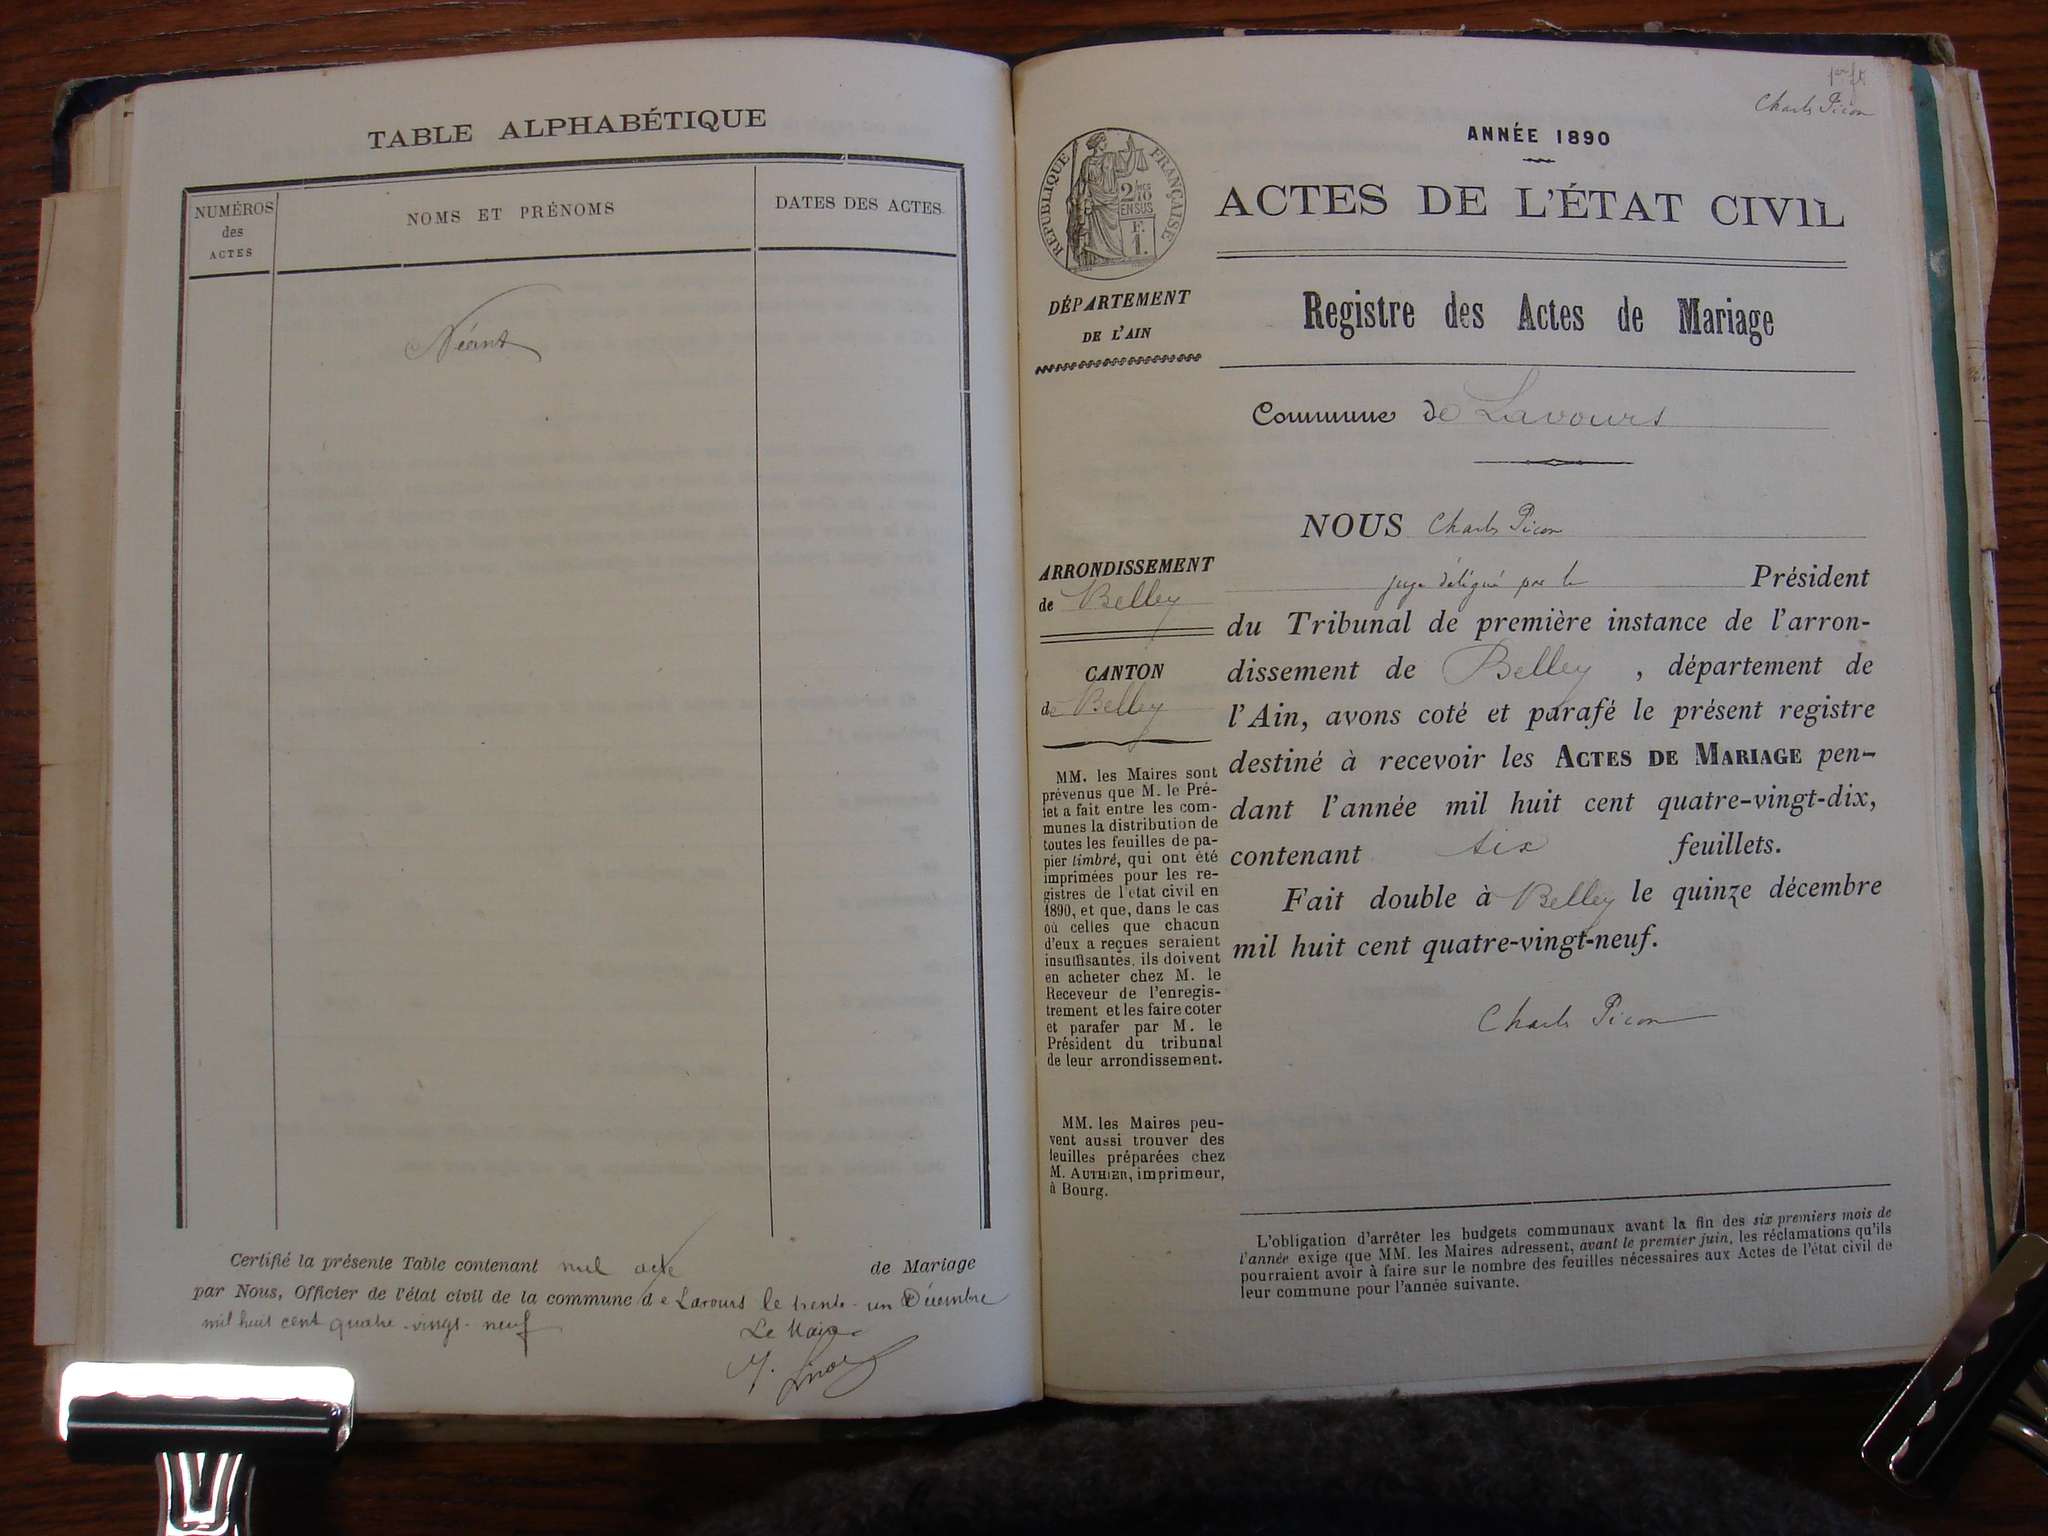 TABLE ALPHABÉTIQUE
NUMÉROS
des
ACTES
NOMS ET PRÉNOMS
DATES DES ACTES
Néant
Certifié la présente Table contenant nul acte de Mariage
par Nous, Officier de l'état civil de la commune de Lavours le trente-un Décembre
mil huit cent quatre-vingt-neuf
Le Maire
1er ft
Charles Picon
ANNÉE 1890
RÉPUBLIQUE FRANÇAISE
2/10
EN SUS
F.
1.
ACTES DE L'ÉTAT CIVIL
DÉPARTEMENT
DE L'AIN
Registre des Actes de Mariage
Commune de Lavours
ARRONDISSEMENT
de Belley
CANTON
de Belley
MM. les Maires sont
prévenus que M. le Pré-
fet a fait entre les com-
munes la distribution de
toutes les feuilles de pa-
pier timbré, qui ont été
imprimées pour les re-
gistres de l'état civil en
1890, et que, dans le cas
où celles que chacun
d'eux a reçues seraient
insuffisantes, ils doivent
en acheter chez M. le
Receveur de l'enregis-
trement et les faire coter
et parafer par M. le
Président du tribunal
de leur arrondissement.
MM. les Maires peu-
vent aussi trouver des
feuilles préparées chez
M. AUTHIER, imprimeur,
à Bourg.
NOUS Charles Picon
juge délégué par le Président
du Tribunal de première instance de l'arron-
dissement de Belley, département de
l'Ain, avons coté et parafé le présent registre
destiné à recevoir les ACTES DE MARIAGE pen-
dant l'année mil huit cent quatre-vingt-dix,
contenant six feuillets.
Fait double à Belley le quinze décembre
mil huit cent quatre-vingt-neuf.
Charles Picon
L'obligation d'arrêter les budgets communaux avant la fin des six premiers mois de
l'année exige que MM. les Maires adressent, avant le premier juin, les réclamations qu'ils
pourraient avoir à faire sur le nombre des feuilles nécessaires aux Actes de l'état civil de
leur commune pour l'année suivante.